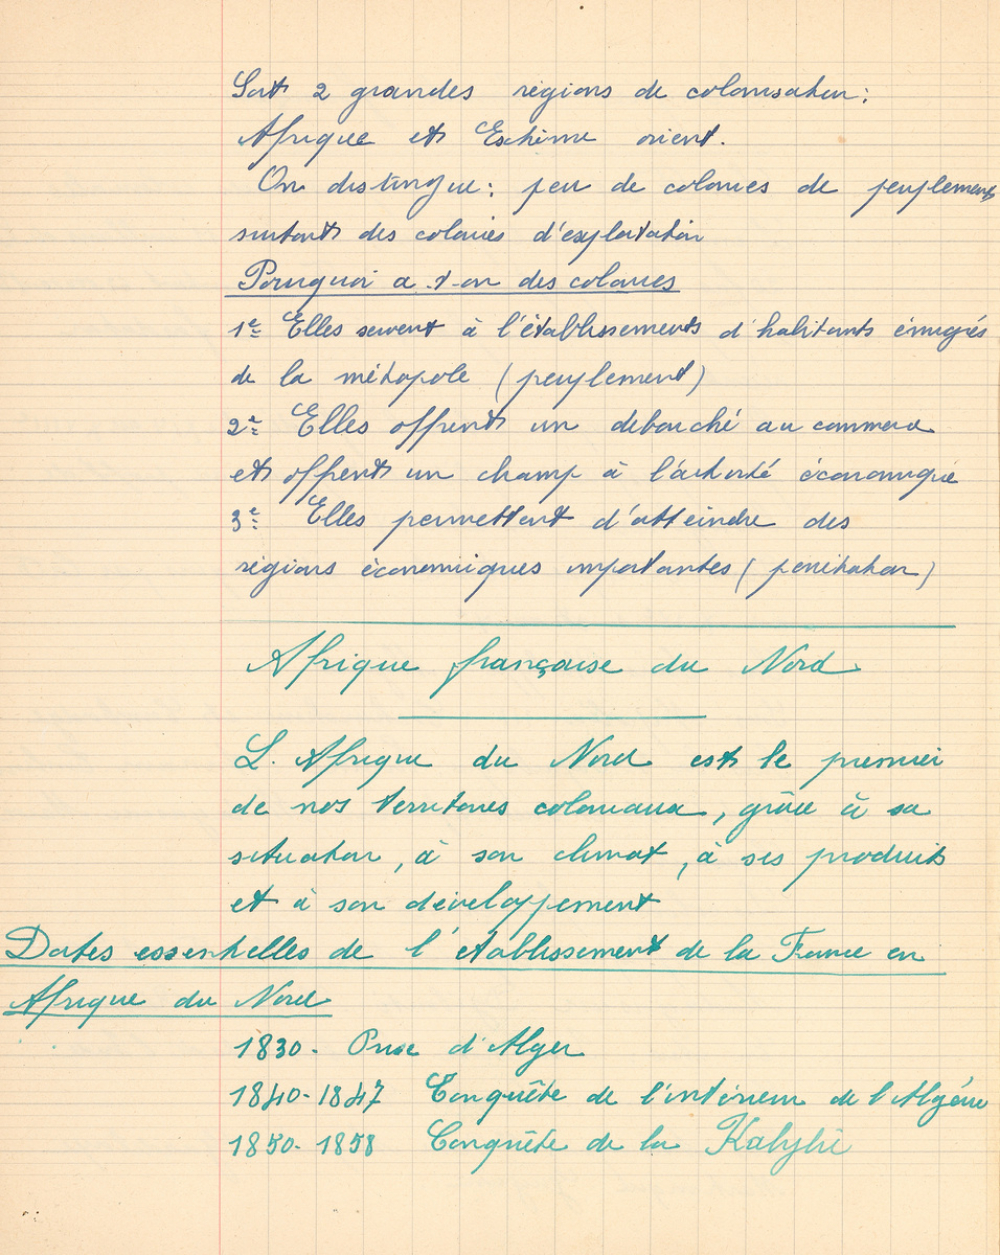 Soit 2 grandes régions de colonisation :
Afrique et Extrême orient.
On distingue : peu de colonies de peuplement
surtout des colonies d'exploitation
Pourquoi a-t-on des colonies
1e Elles servent à l'établissements d'habitants émigrés
de la métropole (peuplement)
2e Elles offrent un debouché au commerce
et offrent un champ à l'activité économique
3e Elles permettent d'atteindre des
régions économiques importantes (pénétration)
Afrique française du Nord
L'Afrique du Nord est le premier
de nos territoires coloniaux, grâce à sa
situation, à son climat, à ses produits
et à son développement
Dates essentielles de l'etablissement de la France en
Afrique du Nord
1830 - Prise d'Alger
1840-1847 Conquête de l'intérieur de l'Algérie
1850-1858 Conquête de la Kabylie